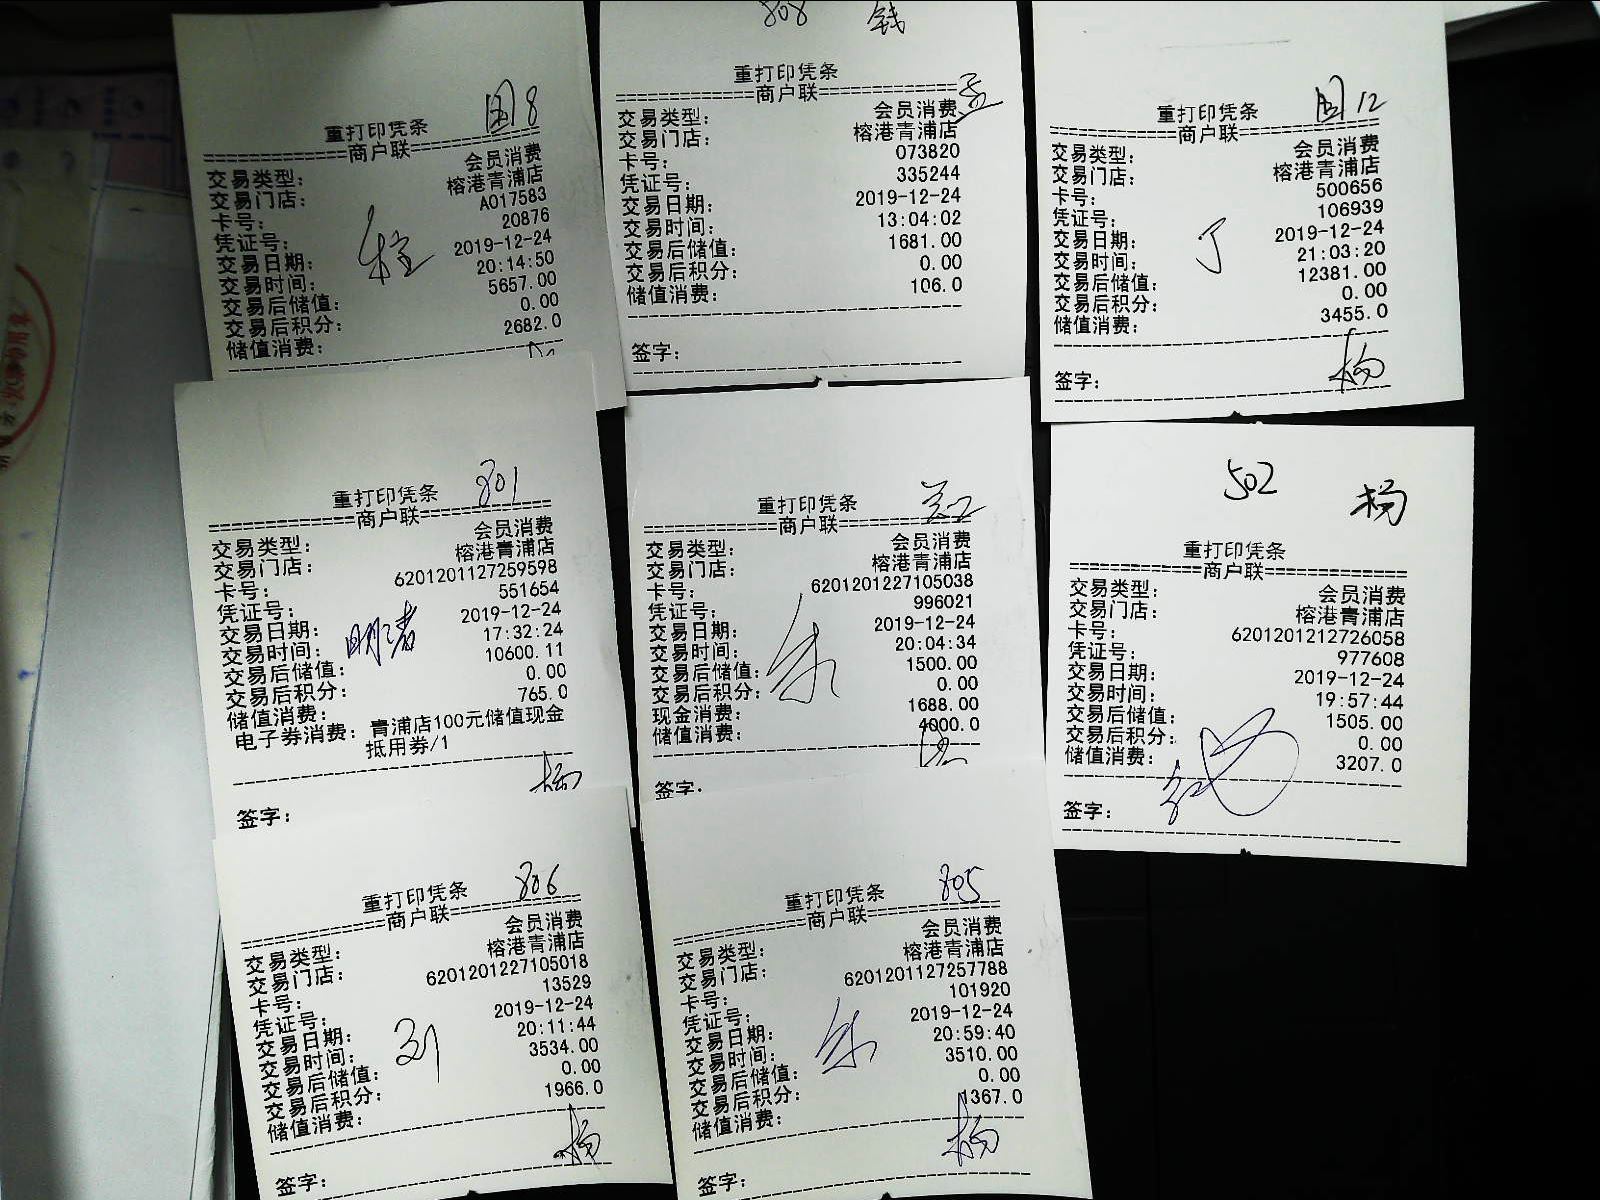 国8
重打印凭条
=============商户联=============
交易类型: 会员消费
交易门店: 榕港青浦店
卡号: A017583
凭证号: 20876
交易日期: 2019-12-24
交易时间: 20:14:50
交易后储值: 5657.00
交易后积分: 0.00
储值消费: 2682.0
808 钱
重打印凭条
=============商户联=============
交易类型: 会员消费
交易门店: 榕港青浦店
卡号: 073820
凭证号: 335244
交易日期: 2019-12-24
交易时间: 13:04:02
交易后储值: 1681.00
交易后积分: 0.00
储值消费: 106.0
签字:
国12
重打印凭条
=============商户联=============
交易类型: 会员消费
交易门店: 榕港青浦店
卡号: 500656
凭证号: 106939
交易日期: 2019-12-24
交易时间: 21:03:20
交易后储值: 12381.00
交易后积分: 0.00
储值消费: 3455.0
丁
签字: 杨
801
重打印凭条
=============商户联=============
交易类型: 会员消费
交易门店: 榕港青浦店
卡号: 6201201127259598
凭证号: 551654
交易日期: 2019-12-24
交易时间: 17:32:24
交易后储值: 10600.11
交易后积分: 0.00
储值消费: 765.0
电子券消费: 青浦店100元储值现金
抵用券/1
杨
签字:
重打印凭条
=============商户联=============
交易类型: 会员消费
交易门店: 榕港青浦店
卡号: 6201201227105038
凭证号: 996021
交易日期: 2019-12-24
交易时间: 20:04:34
交易后储值: 1500.00
交易后积分: 0.00
现金消费: 1688.00
储值消费: 4000.0
朱
签字:
502 杨
重打印凭条
=============商户联=============
交易类型: 会员消费
交易门店: 榕港青浦店
卡号: 6201201212726058
凭证号: 977608
交易日期: 2019-12-24
交易时间: 19:57:44
交易后储值: 1505.00
交易后积分: 0.00
储值消费: 3207.0
签字:
806
重打印凭条
=============商户联=============
交易类型: 会员消费
交易门店: 榕港青浦店
卡号: 6201201227105018
凭证号: 13529
交易日期: 2019-12-24
交易时间: 20:11:44
交易后储值: 3534.00
交易后积分: 0.00
储值消费: 1966.0
刘
杨
签字:
805
重打印凭条
=============商户联=============
交易类型: 会员消费
交易门店: 榕港青浦店
卡号: 6201201127257788
凭证号: 101920
交易日期: 2019-12-24
交易时间: 20:59:40
交易后储值: 3510.00
交易后积分: 0.00
储值消费: 1367.0
朱
杨
签字: